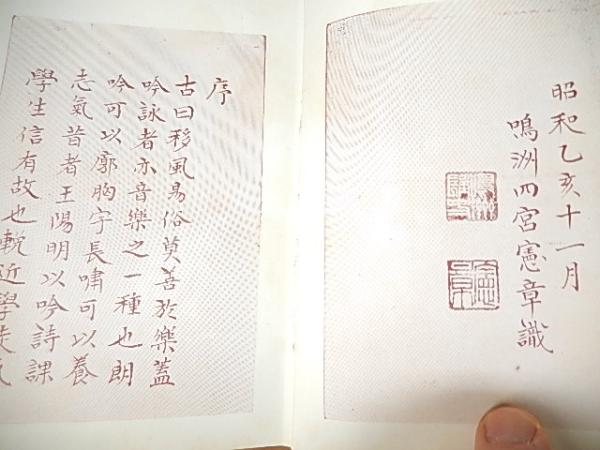 昭和乙亥十一月
鳴洲四宮憲章識
憲章
序
古曰移風易俗莫善於樂蓋
吟詠者亦音樂之一種也朗
吟可以廓胸宇長嘯可以養
志氣昔者王陽明以吟詩課
學生信有故也輓近學徒